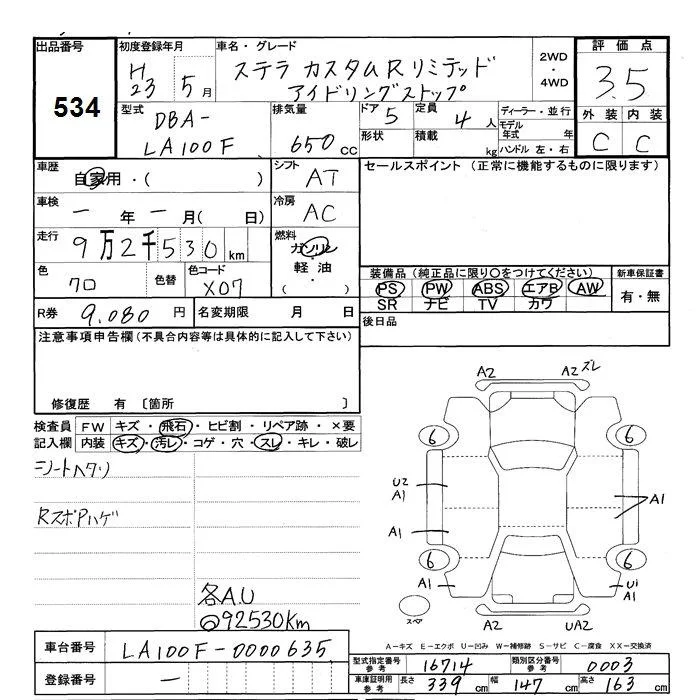 出品番号
534
初度登録年月
H23 5月
車名・グレード
ステラ カスタムRリミテッド
アイドリングストップ
2WD
・
4WD
評価点
3.5
外装 内装
C C
型式
DBA-
LA100F
排気量
650cc
ドア
5
定員
4人
形状
積載
kg
ディーラー・並行
モデル年式 年
ハンドル 左・右
車歴
自家用・( )
シフト
AT
セールスポイント (正常に機能するものに限ります)
車検
一年一月( 日)
冷房
AC
走行
9万2千530km
燃料
ガソリン
軽油
・( )
色
クロ
色替
色コード
X07
装備品 (純正品に限り○をつけてください)
PS PW ABS エアB AW
SR ナビ TV カワ
新車保証書
有・無
R券
9.080円
名変期限 月 日
後日品
注意事項申告欄 (不具合内容等は具体的に記入して下さい)
修復歴 有 〔箇所 〕
検査員記入欄
FW キズ・飛石・ヒビ割・リペア跡・×要
内装 キズ・汚レ・コゲ・穴・スレ・キレ・破レ
シートヘタリ
RスポPハゲ
各A.U
92530Km
A2
A2 ズレ
6
6
U2
A1
A1
A1
6
6
A1
U1
A1
スペア
A2
UA2
A-キズ E-エクボ U-凹み W-補修跡 S-サビ C-腐食 XX-交換済
車台番号
LA100F-0000635
登録番号
一
型式指定番号
参考
16714
類別区分番号
参考
0003
車庫証明用
参考
長さ 339cm 幅 147cm 高さ 163cm